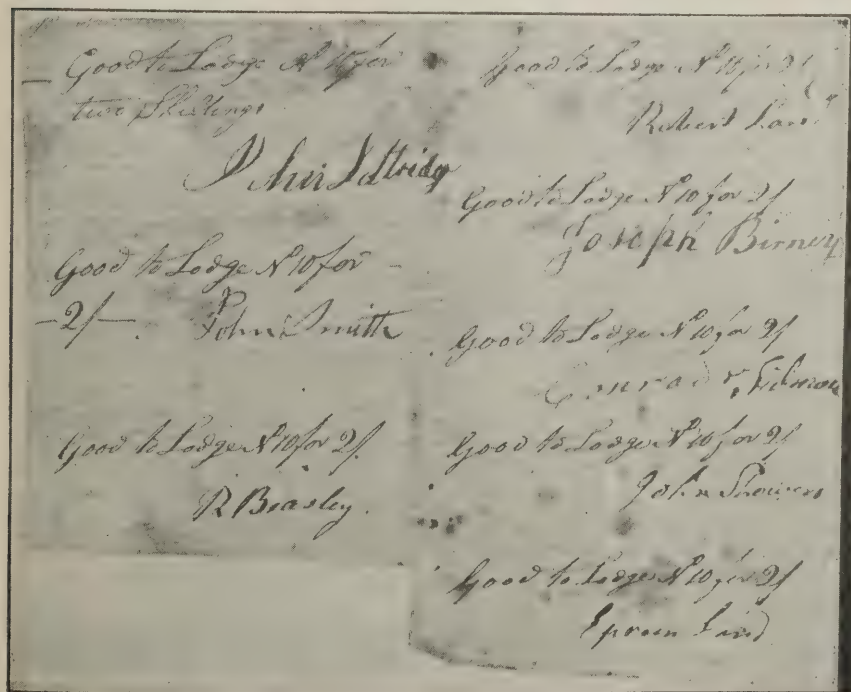 Good to Lodge No 10 for
two Shillings
Good to Lodge No 10 for
2/
John Smith
Good to Lodge No 10 for 2/
R Beasley.
Good to Lodge No 10 for 2/
Robert
Good to Lodge No 10 for 2/
Joseph Birney
Good to Lodge No 10 for 2/
Conrad
Good to Lodge No 10 for 2/
John Showers
Good to Lodge No 10 for 2/
Land